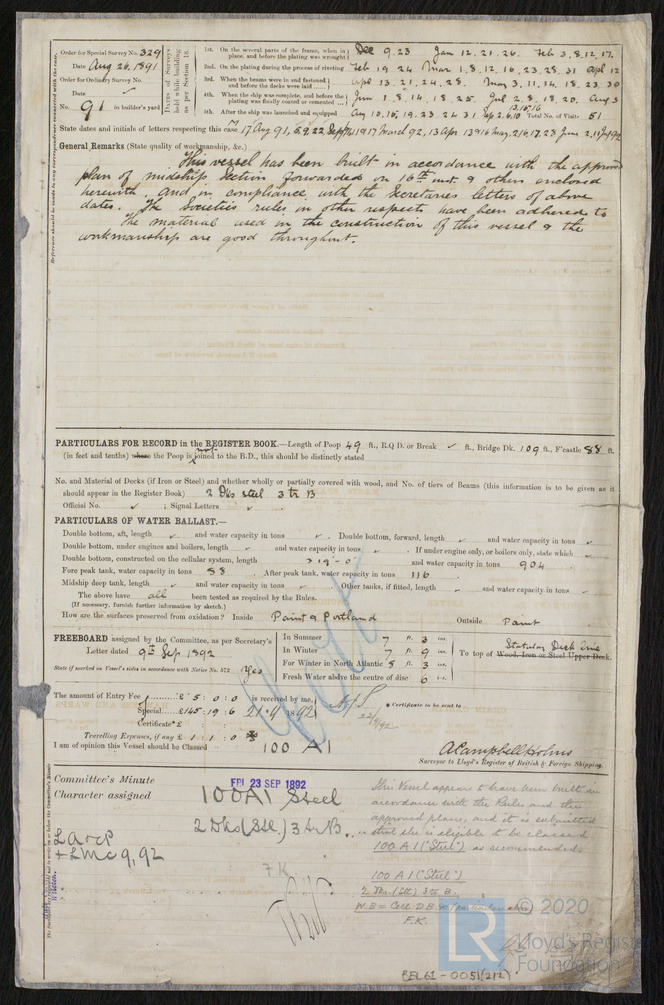 Order for Special Survey No. 329
Date Aug 26, 1891
Order for Ordinary Survey No.
Date ✓
No. 91 in builder's yard
Dates of Surveys held while building as per Section 18.
1st. On the several parts of the frame, when in place, and before the plating was wrought Dec 9.23 Jan 12.21.26. Feb 3.8.12.17.
2nd. On the plating during the process of riveting Feb 19 24 Mar 1.8.12.16.23.28.31 Apl 12
3rd. When the beams were in and fastened and before the decks were laid Apl 13.21.24.28. May 3.11.14.18.23.30
4th. When the ship was complete, and before the plating was finally coated or cemented June 1.8.14.18.25 Jul 2.8.18.20. Aug 3
5th. After the ship was launched and equipped Aug 10.15.19.23.24.31 Sep 2.6.10 13.15.16 Total No. of Visits 51
State dates and initials of letters respecting this case
General Remarks (State quality of workmanship, &c.)
This vessel has been built in accordance with the approved
plan of midship section forwarded on 16th inst. & others enclosed
herewith, and in compliance with the Secretaries letters of above
dates. The Societies rules in other respects have been adhered to
The material used in the construction of this vessel & the
workmanship are good throughout.
PARTICULARS FOR RECORD in the REGISTER BOOK.—Length of Poop 49 ft., R.Q D. or Break ✓ ft., Bridge Dk. 109 ft., F'castle 88 ft.
(in feet and tenths) where the Poop is not joined to the B.D., this should be distinctly stated
No. and Material of Decks (if Iron or Steel) and whether wholly or partially covered with wood, and No. of tiers of Beams (this information is to be given as it
should appear in the Register Book) 2 Dks steel 3 tr B
Official No. ✓ ; Signal Letters
PARTICULARS OF WATER BALLAST.—
Double bottom, aft, length ✓ and water capacity in tons ✓ . Double bottom, forward, length ✓ and water capacity in tons ✓
Double bottom, under engines and boilers, length ✓ and water capacity in tons ✓ . If under engine only, or boilers only, state which ✓
Double bottom, constructed on the cellular system, length 319-0 and water capacity in tons 904
Fore peak tank, water capacity in tons 88 . After peak tank, water capacity in tons 116
Midship deep tank, length ✓ and water capacity in tons ✓ . Other tanks, if fitted, length ✓ and water capacity in tons ✓
The above have all been tested as required by the Rules.
(If necessary, furnish further information by sketch.)
How are the surfaces preserved from oxidation? Inside Paint & Portland Outside Paint
FREEBOARD assigned by the Committee, as per Secretary's
Letter dated 9th Sep 1892
State if marked on Vessel's sides in accordance with Notice No. 572 Yes
In Summer 7 ft. 3 ins.
In Winter 7 ft. 9 ins.
For Winter in North Atlantic 8 ft. 3 ins.
Fresh Water above the centre of disc 6 ins.
To top of Wood, Iron or Steel Upper Deck. Statutory Deck line
The amount of Entry Fee £5 : 0 : 0 is received by me,
Special £145 : 19 : 6 21.9.1892
Certificate* £
Travelling Expenses, if any £ 1 : 1 : 0
* Certificate to be sent to
I am of opinion this Vessel should be Classed 100 A1
A Campbell Holms
Surveyor to Lloyd's Register of British & Foreign Shipping.
Committee's Minute FRI 23 SEP 1892
Character assigned 100A1 Steel
2 Dks (Stl) 3 tr B.
LA & CP
+ LMC 9,92
F.K.
This Vessel appears to have been built in
accordance with the Rules and the
approved plans, and it is submitted
that she is eligible to be classed
100 A1 ("Steel") as recommended
100 A1 ("Steel")
2 Dks (Stl) 3 tr B.
W.B = Cell D.B
F.K.
© 2020
LR
Lloyd's Register
Foundation
BEL61-0051(2/2)